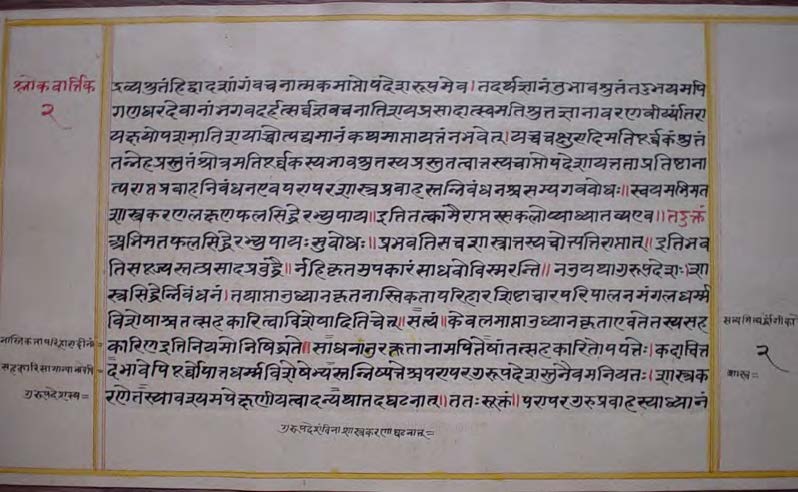 श्लोकवार्त्तिक
२
द्रव्यश्रुतंहिद्वादशांगंवचनात्मकमाप्तोपदेशरूपमेव।तदर्थज्ञानंतुभावश्रुतंतदुभयमपि
गणधरदेवानांभगवदर्हत्सर्वज्ञवचनातिशयप्रसादात्स्वमतिश्रुतज्ञानावरणवीर्यांतरा
यक्षयोपशमातिशयाच्चोत्पद्यमानंकथमाप्तायत्तंनभवेत्।यच्चचक्षुरादिमतिपूर्वकंश्रुतं
तन्नेहप्रस्तुतंश्रोत्रमतिपूर्वकस्यभावश्रुतस्यप्रस्तुतत्वात्तस्यचाप्तोपदेशायत्तताप्रतिष्ठाना
त्परापरप्रवाहनिबंधनएवपरापरशास्त्रप्रवाहस्तन्निबंधनश्चसम्यगवबोधः॥स्वयमभिमत
शास्त्रकरणलक्षणफलसिद्धेरभ्युपाय॥इतितत्कामैराप्तस्सकलोप्याध्यातव्यएव।तदुक्तं
अभिमतफलसिद्धेरभ्युपायःसुबोधः॥प्रभवतिसचशास्त्रात्तस्यचोत्पत्तिराप्तात्॥इतिभव
तिसपूज्यस्तत्प्रसादप्रबुद्धै॥र्नहिकृतमुपकारंसाधवोविस्मरन्ति॥ननुयथागुरूपदेशः।शा
स्त्रसिद्धेर्निबंधनं।तथाप्तानुध्यानकृतनास्तिकतापरिहारशिष्टाचारपरिपालनमंगलधर्म्म
विशेषाश्चतत्सहकारित्वाविशेषादितिचेत्॥सत्यं॥केवलमाप्तानुध्यानकृताएवतेतस्यसह
कारिणइतिनियमोनिषिध्यते॥साधनांतरकृतानामपितेषांतत्सहकारितोपपत्तेः।कदाचित्त
दभावेपिपूर्वोपात्तधर्म्मविशेषेभ्यस्तन्निष्पत्तेश्चपरापरगुरूपदेशस्तुनैवमनियतः।शास्त्रक
रणेतस्यावश्यमपेक्षणीयत्वादन्यथातदघटनात्॥ततःसूक्तं॥परापरगुरुप्रवाहस्याध्यानं
नास्तिकतापरिहारादीनां=
गुरूपदेशस्य=
गुरूपदेशंविनाशास्त्रकरणाघटनात्=
२
शास्त्र=